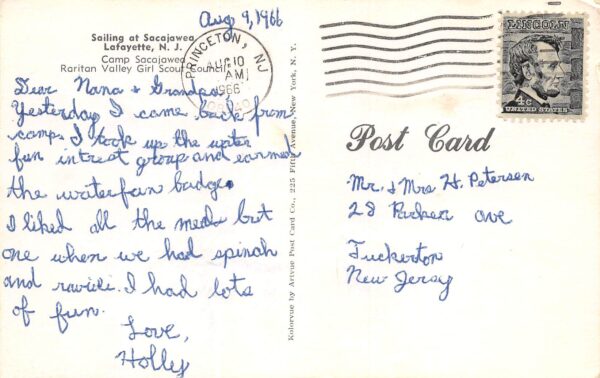 Aug 9, 1966
Sailing at Sacajawea
Lafayette, N. J.
Camp Sacajawea
Raritan Valley Girl Scout Council
PRINCETON, NJ
AUG 10
AM
1966
Dear Nana & Grandpa,
Yesterday I came back from
camp. I took up the water
fun intrest group and earned
the waterfun badge.
I liked all the meals but
one when we had spinah
and ravioli. I had lots
of fun.
Love,
Holly
Kolorvue by Artvue Post Card Co., 225 Fifth Avenue, New York, N. Y.
LINCOLN
4c
UNITED STATES
Post Card
Mr. & Mrs H. Petersen
28 Parker ave
Tuckerton
New Jersey